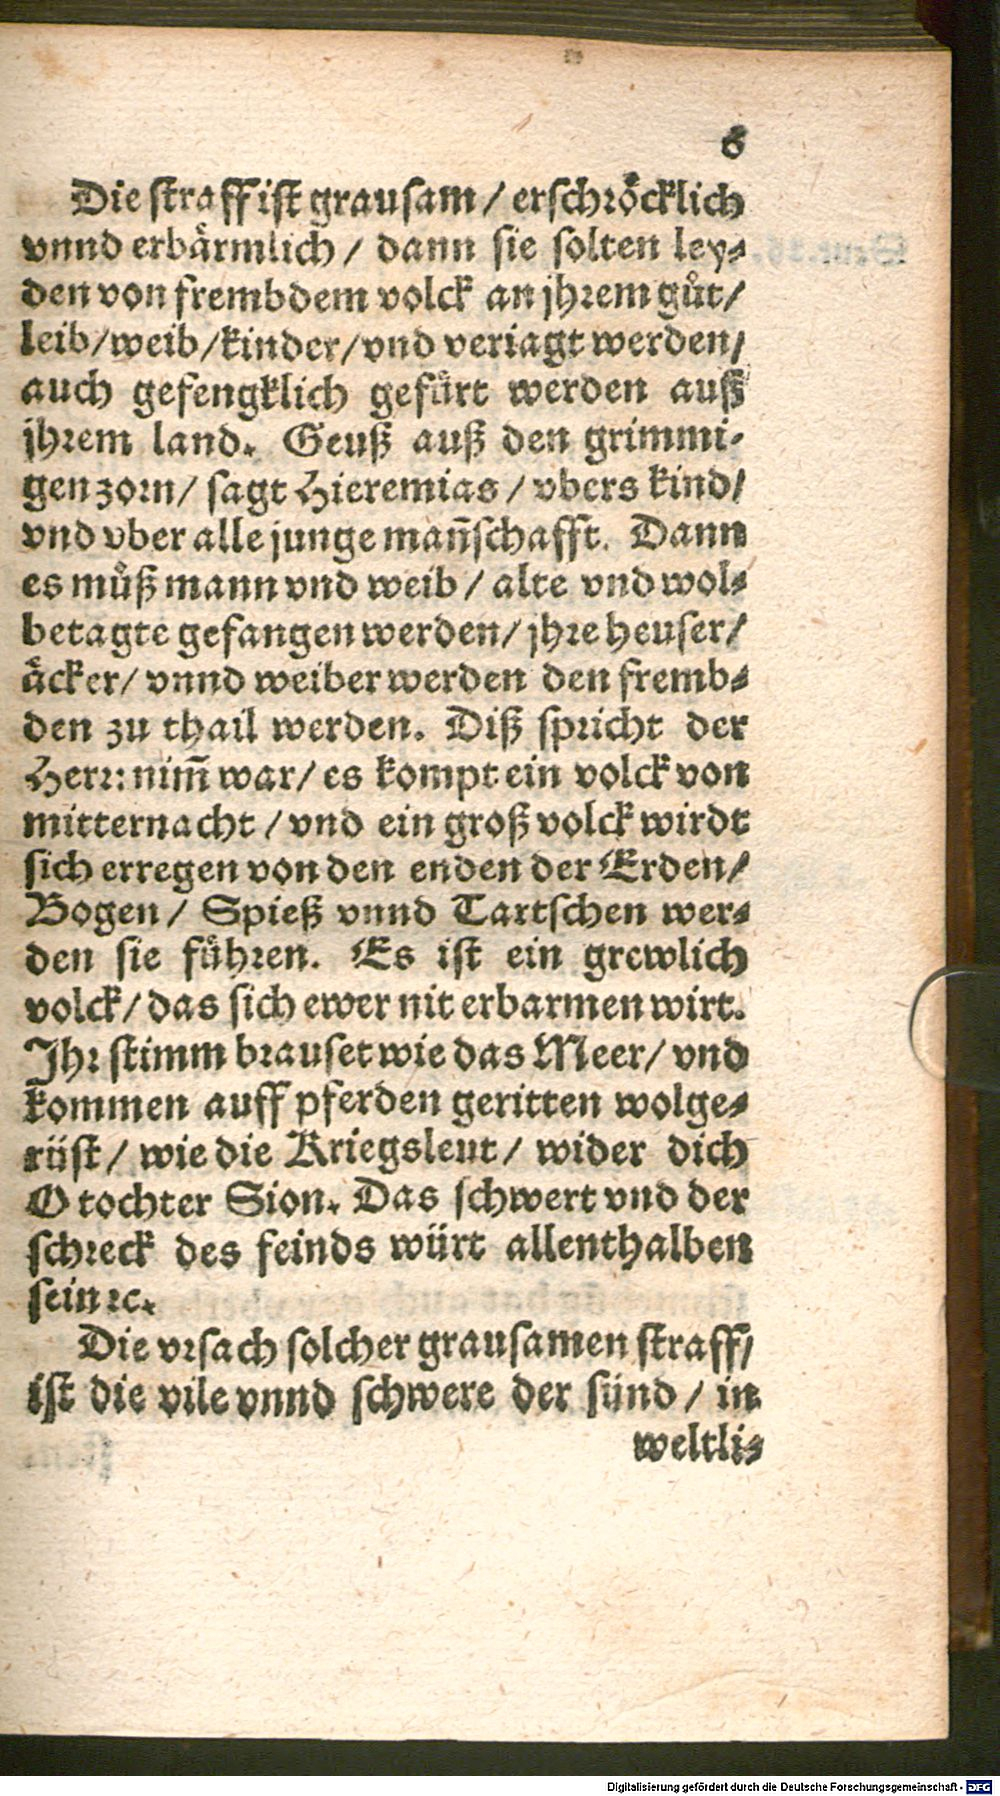 6
Die straff ist grausam / erschröcklich
vnnd erbärmlich / dann sie solten ley⸗
den von frembdem volck an jhrem gůt /
leib / weib / kinder / vnd veriagt werden /
auch gefengklich gefürt werden auß
jhrem land. Geuß auß den grimmi⸗
gen zorn / sagt Hieremias / vbers kind /
vnd vber alle junge man̄schafft. Dann
es můß mann vnd weib / alte vnd wol⸗
betagte gefangen werden / jhre heuser /
äcker / vnnd weiber werden den fremb⸗
den zu thail werden. Diß spricht der
Herr: nim̄ war / es kompt ein volck von
mitternacht / vnd ein groß volck wirdt
sich erregen von den enden der Erden /
Bogen / Spieß vnnd Tartschen wer⸗
den sie führen. Es ist ein grewlich
volck / das sich ewer nit erbarmen wirt.
Ihr stimm brauset wie das Meer / vnd
kommen auff pferden geritten wolge⸗
rüst / wie die Kriegsleut / wider dich
O tochter Sion. Das schwert vnd der
schreck des feinds würt allenthalben
sein ꝛc.
Die vrsach solcher grausamen straff /
ist die vile vnnd schwere der sünd / in
weltli⸗
Digitalisierung gefördert durch die Deutsche Forschungsgemeinschaft - DFG